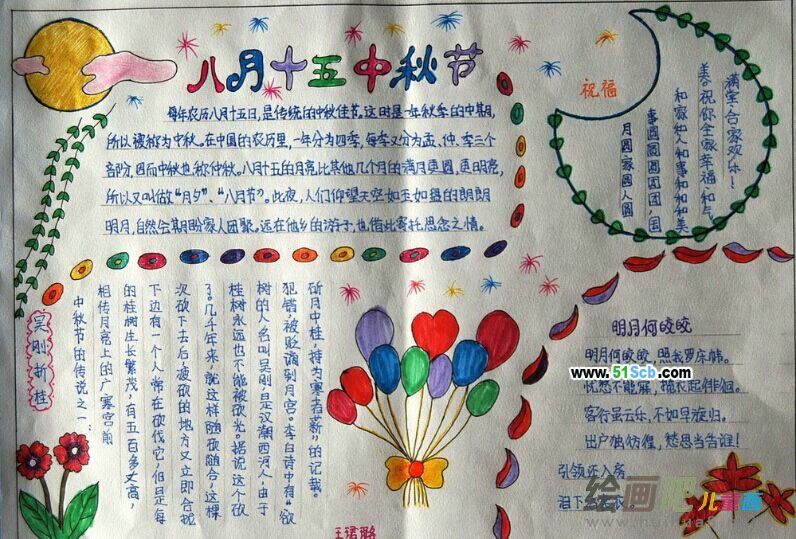 八月十五中秋节
每年农历八月十五日,是传统的中秋佳节。这时是一年秋季的中期,
所以被称为中秋。在中国的农历里,一年分为四季,每季又分为孟、仲、季三个
部分,因而中秋也称仲秋。八月十五的月亮比其他几个月的满月更圆,更明亮,
所以又叫做“月夕”、“八月节”。此夜,人们仰望天空如玉如盘的朗朗
明月,自然会期盼家人团聚。远在他乡的游子,也借此寄托思念之情。
祝福
月圆家圆人圆
事圆圆圆团团,国
和家和人和事和和和美
美。祝你全家幸福、和气
满堂、合家欢乐!
吴刚折桂
中秋节的传说之一:
相传月亮上的广寒宫前
的桂树生长繁茂,有五百多丈高,
下边有一个人常在砍伐它,但是每
次砍下去后,被砍的地方又立即合拢
了。几千年来,就这样随砍随合,这棵
桂树永远也不能被砍光。据说这个砍
树的人名叫吴刚,是汉朝西河人,由于
犯错,被贬谪到月宫。李白诗中有“欲
斫月中桂,持为寒者薪”的记载。
明月何皎皎
明月何皎皎,照我罗床帏。
忧愁不能寐,揽衣起徘徊。
客行虽云乐,不如早旋归。
出户独彷徨,愁思当告谁!
引领还入房
泪下
www.51Scb.com
绘画吧儿童画
王珺璐